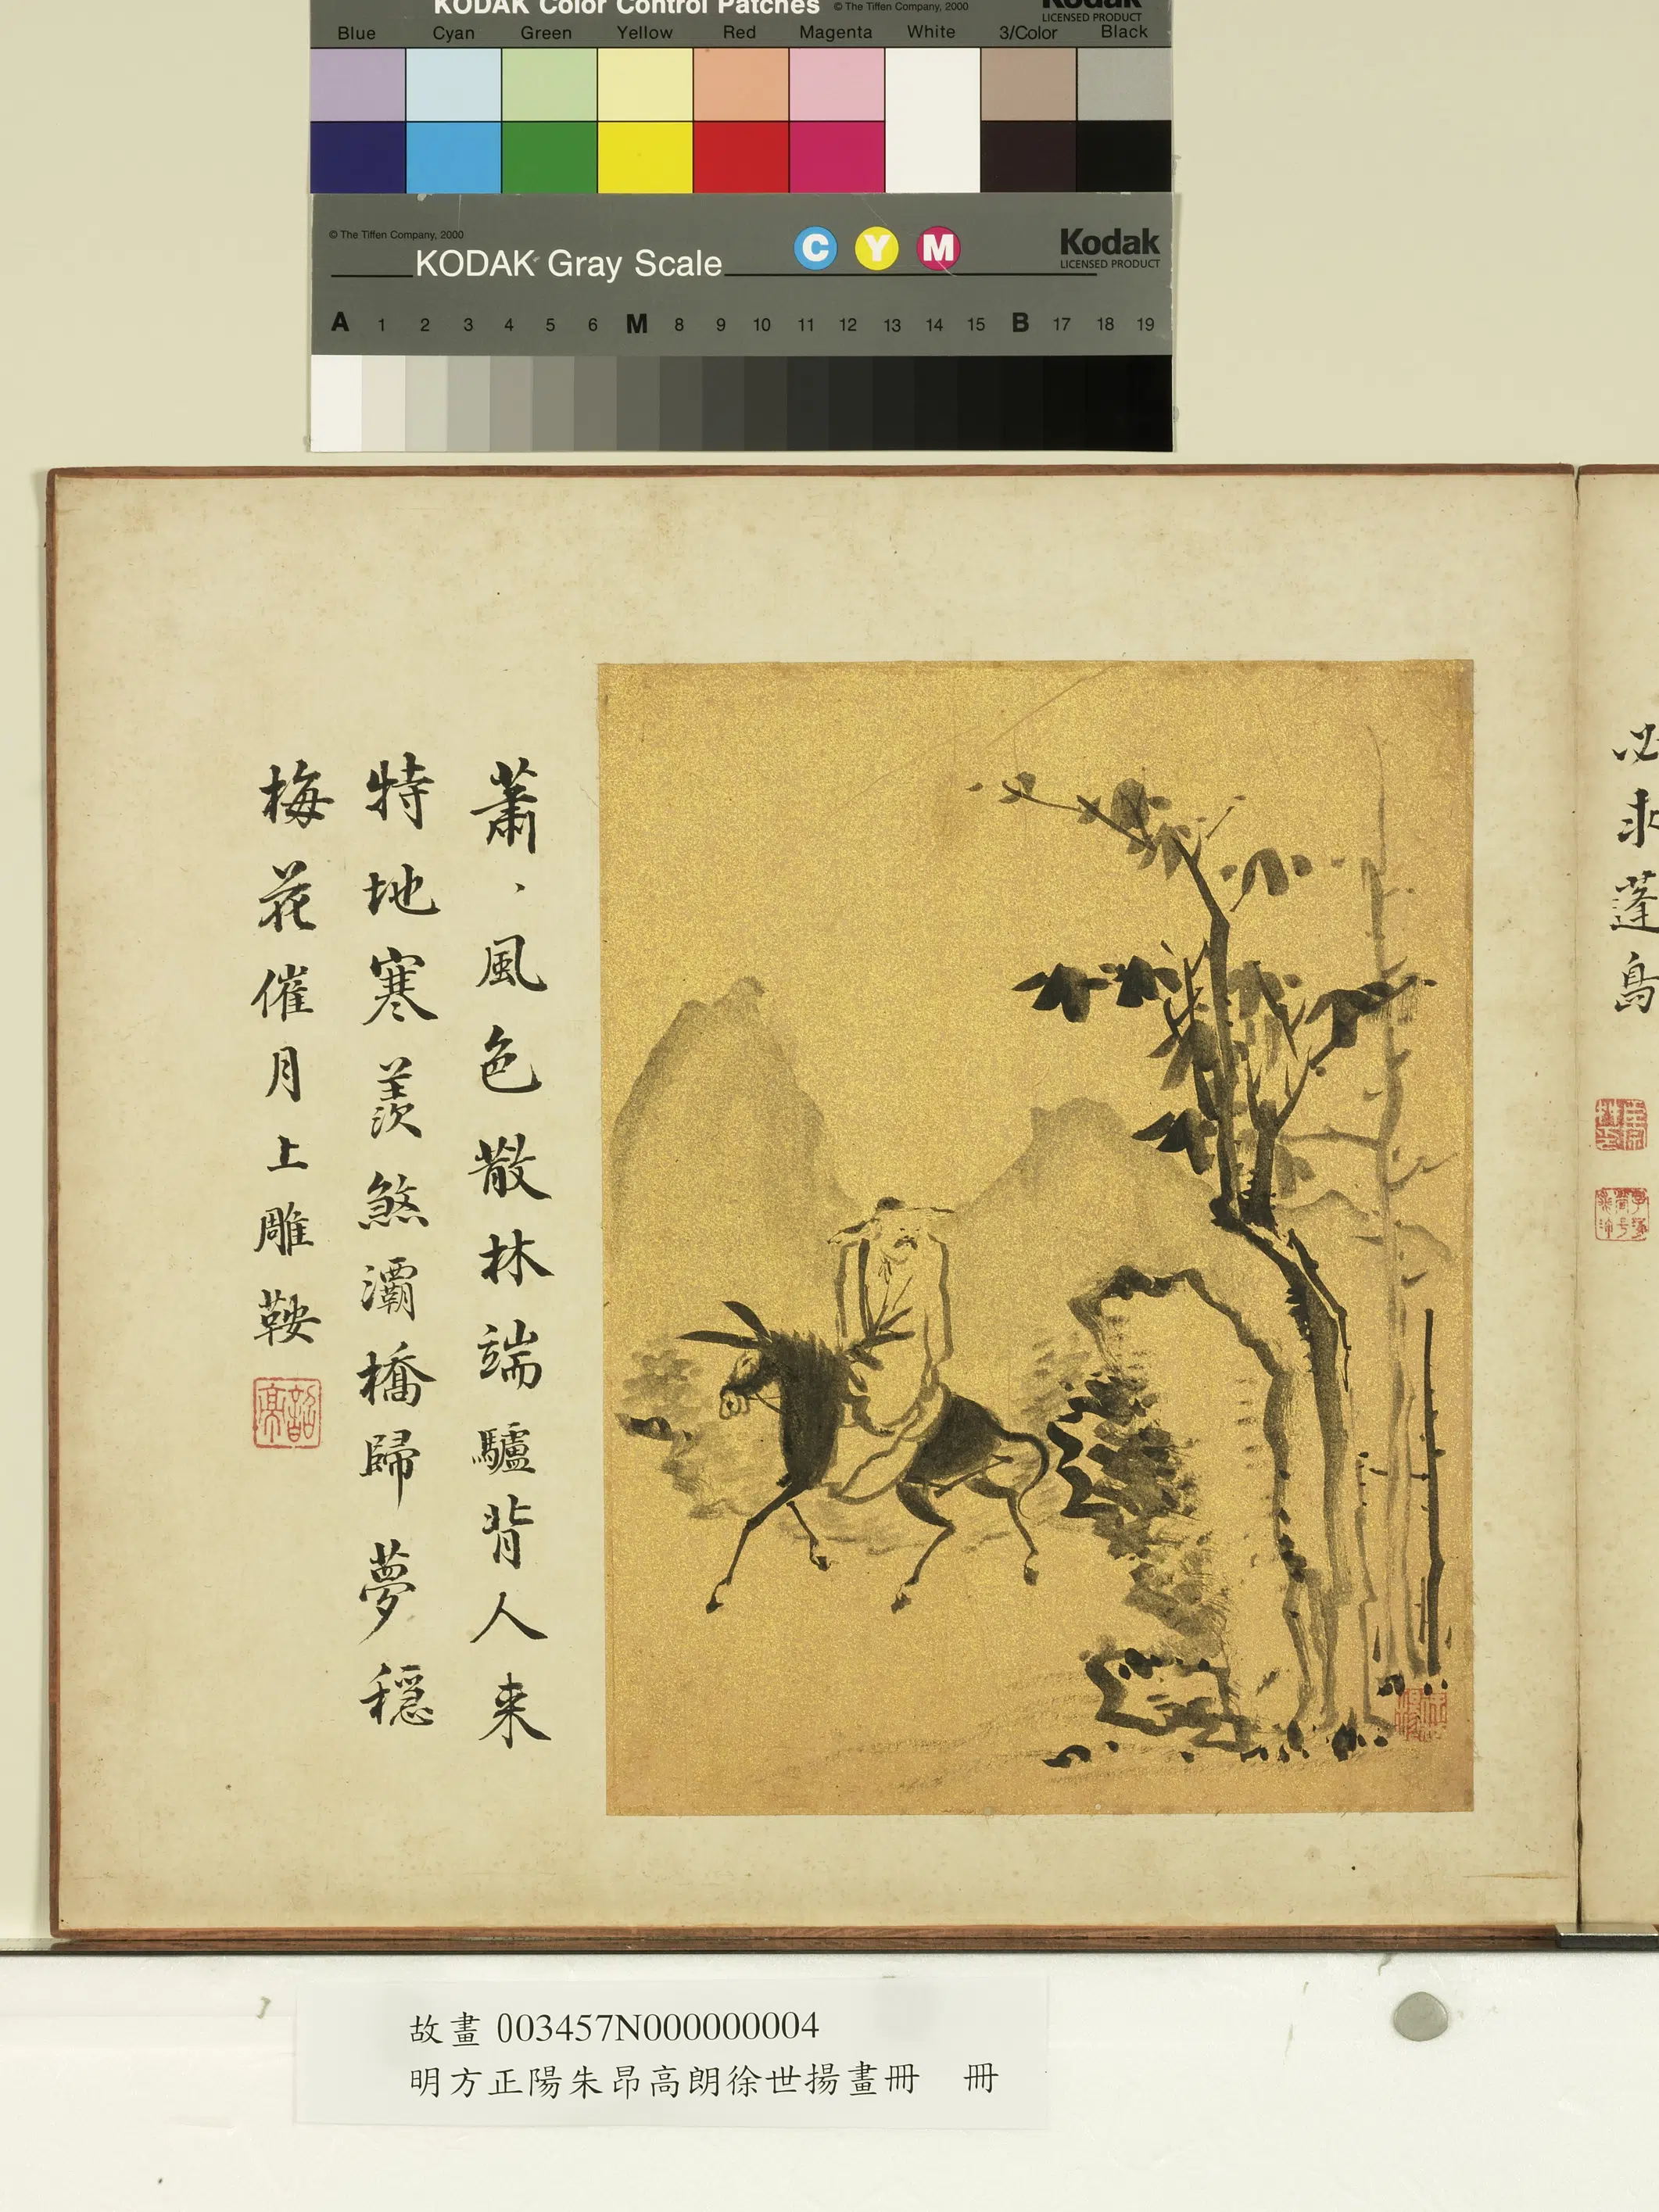 KODAK Color Control Patches © The Tiffen Company, 2000 Kodak
LICENSED PRODUCT
Blue Cyan Green Yellow Red Magenta White 3/Color Black
© The Tiffen Company, 2000
KODAK Gray Scale C Y M Kodak
LICENSED PRODUCT
A 1 2 3 4 5 6 M 8 9 10 11 12 13 14 15 B 17 18 19
蓬島
蕭、風色散林端驢背人来
特地寒羨煞灞橋歸夢穩
梅花催月上雕鞍
故畫 003457N000000004
明方正陽朱昂高朗徐世揚畫冊 冊